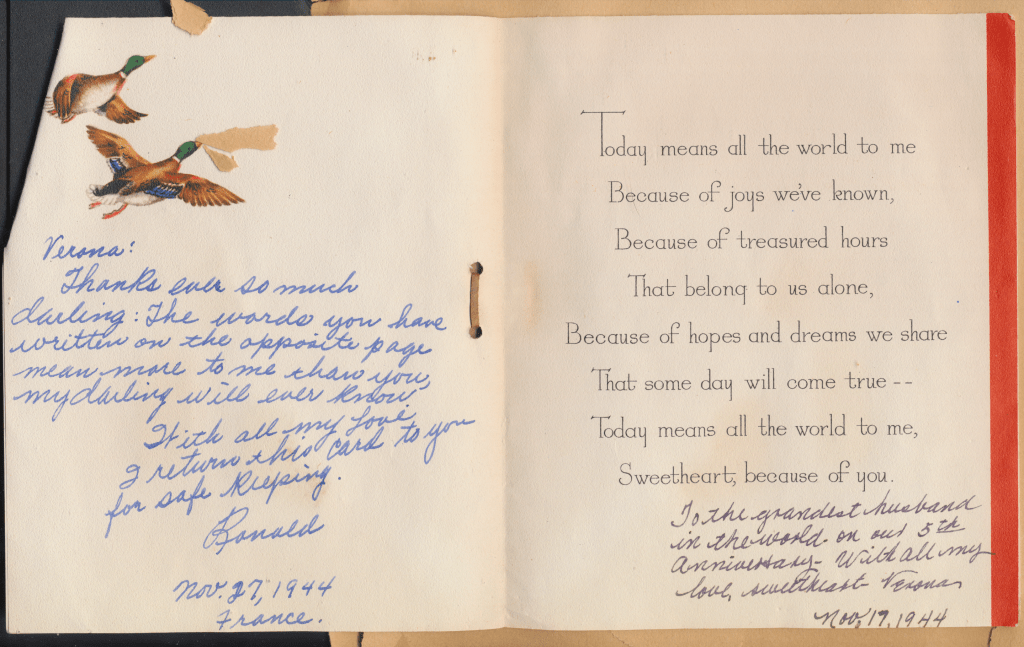 Verona:
Thanks ever so much
darling: The words you have
written on the opposite page
mean more to me than you,
my darling will ever know
With all my love
I return this card to you
for safe keeping.
Ronald
Nov. 27, 1944
France.
Today means all the world to me
Because of joys we've known,
Because of treasured hours
That belong to us alone,
Because of hopes and dreams we share
That some day will come true --
Today means all the world to me,
Sweetheart, because of you.
To the grandest husband
in the world on our 5th
Anniversary - With all my
love, sweetheart - Verona
Nov. 17, 1944